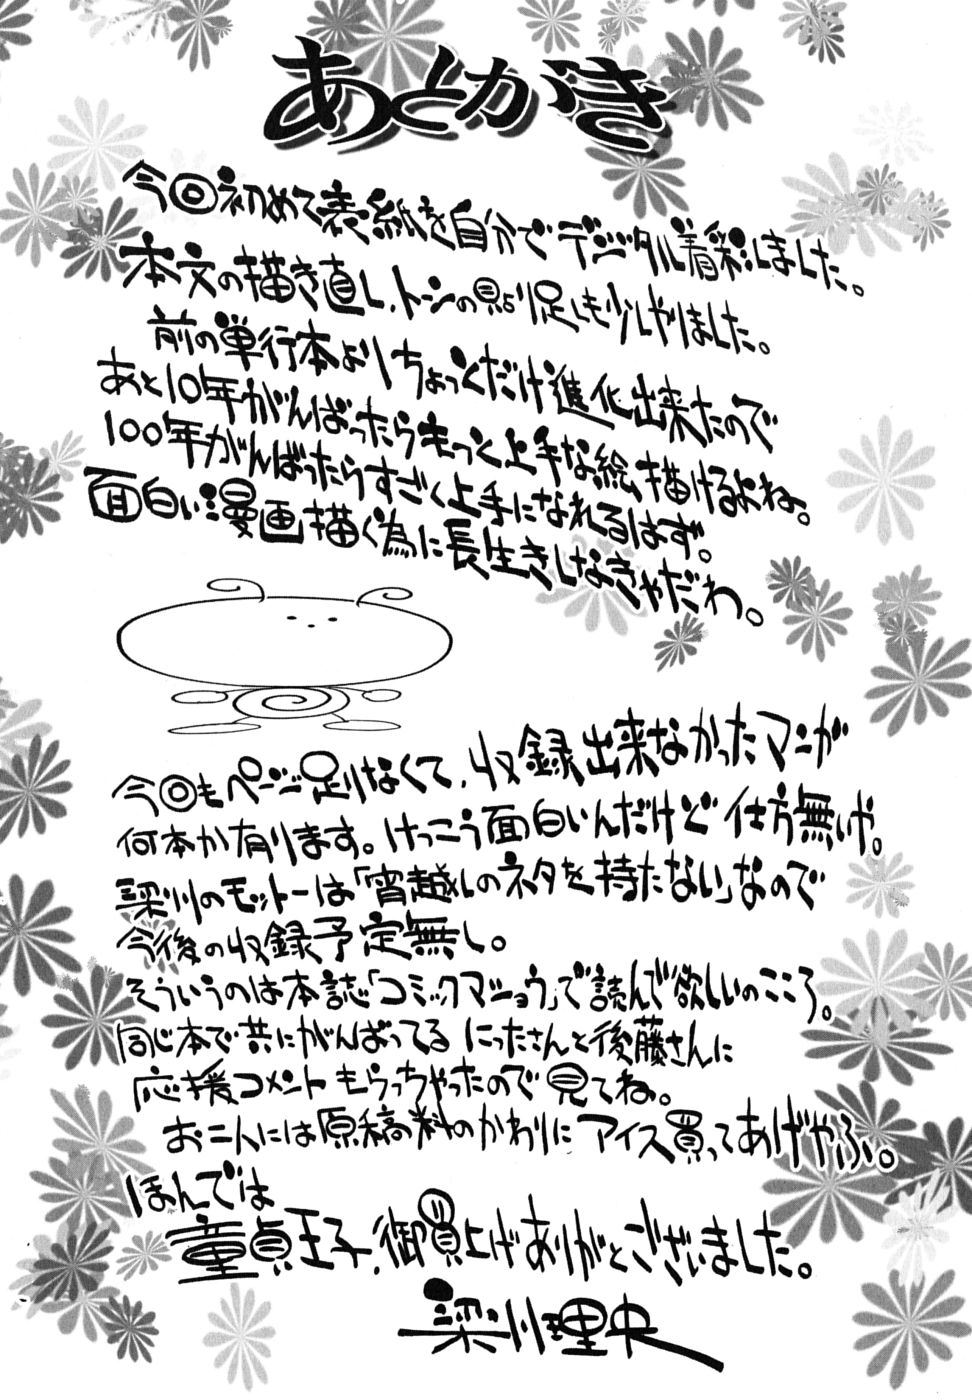 あとがき
今回初めて表紙を自分でデジタル着彩しました。
本文の描き直し、トーンの貼り足しも少しやりました。
前の単行本よりちょっとだけ進化出来たので
あと10年がんばったらもっと上手な絵描けるよね。
100年がんばったらすごく上手になれるはず。
面白い漫画描く為に長生きしなきゃだわ。
今回もページ足りなくて、収録出来なかったマンガ
何本か有ります。けっこう面白いんだけど仕方無いや。
梁川のモットーは「宵越しのネタを持たない」なので
今後の収録予定無し。
そういうのは本誌「コミックマショウ」で読んで欲しいのこころ。
同じ本で共にがんばってるにったさんと後藤さんに
応援コメントもらっちゃったので見てね。
お二人には原稿料のかわりにアイス買ってあげやふ。
ほんでは
童貞王子、御買上げありがとございました。
梁川理央